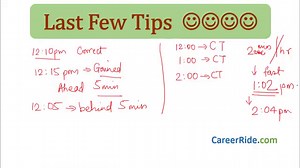 Last Few Tips ☺☺☺☺
12:10pm Correct
12:15 pm → Gained
Ahead 5min
12:05 → behind 5min
12:00 → CT
1:00 → CT
2:00 → CT
2 min/hr
↓ fast
1:02 pm
→ 2:04 pm
CareerRide.com